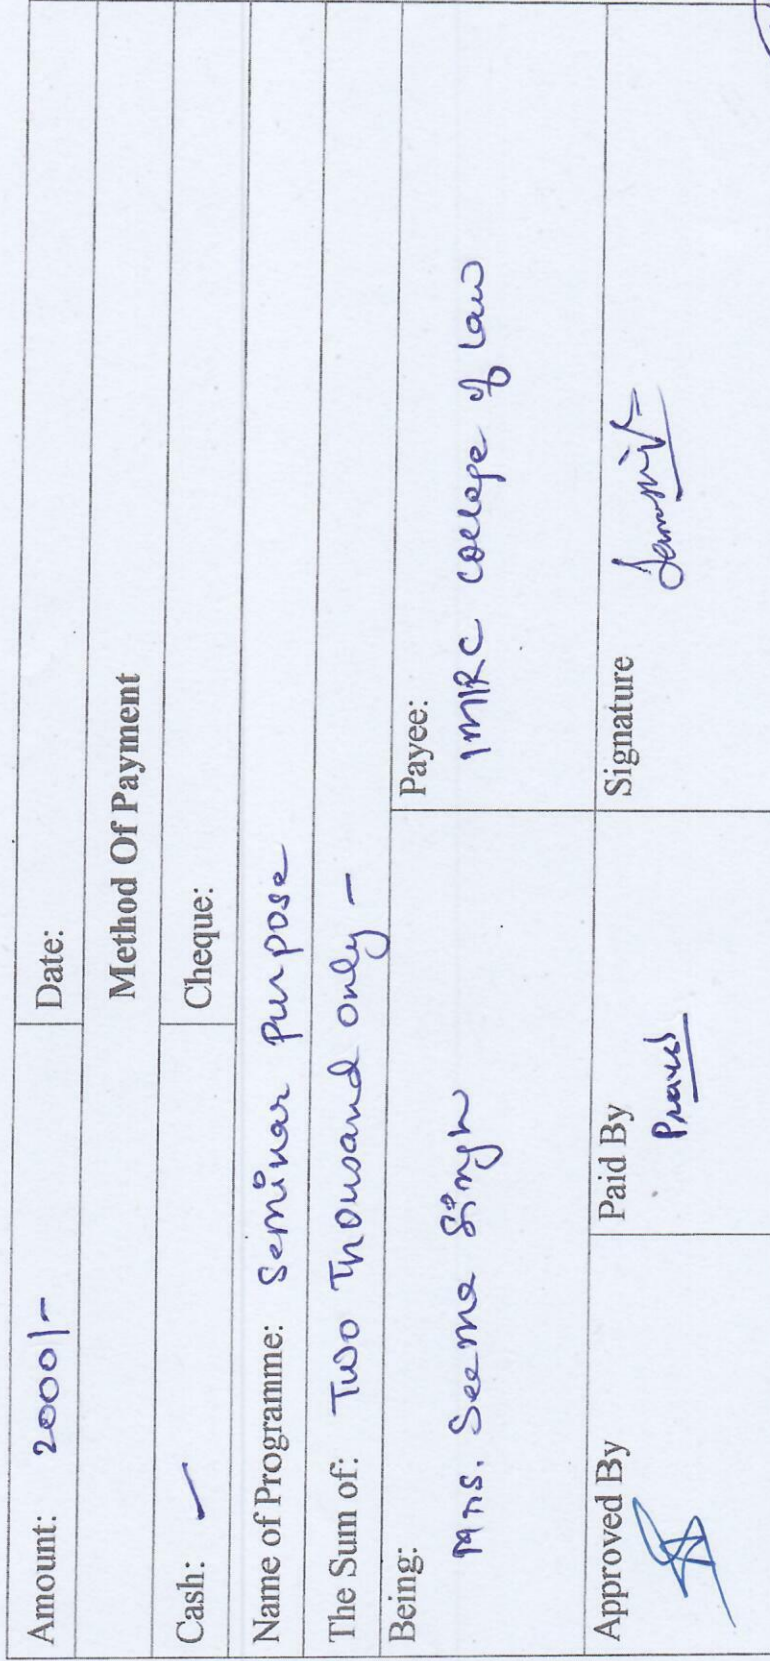 Amount: 2000/- Date:
Method Of Payment
Cash: Cheque:
Name of Programme: Seminar Purpose
The Sum of: Two Thousand only -
Being: Payee:
Mrs. Seema Singh IMIRC College of Law
Approved By Paid By Signature